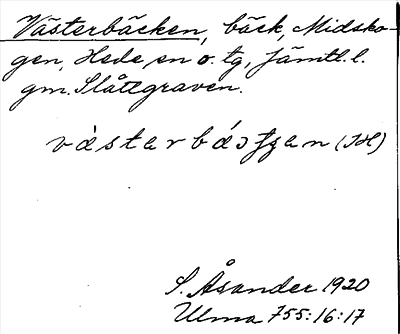 Västerbäcken, bäck, Midsko-
gen, Hede sn o. tg, Jämtl. l.
gm. Slåttgraven.
västerbá (IH)
S. Åsander 1920
Ulma 755:16:17